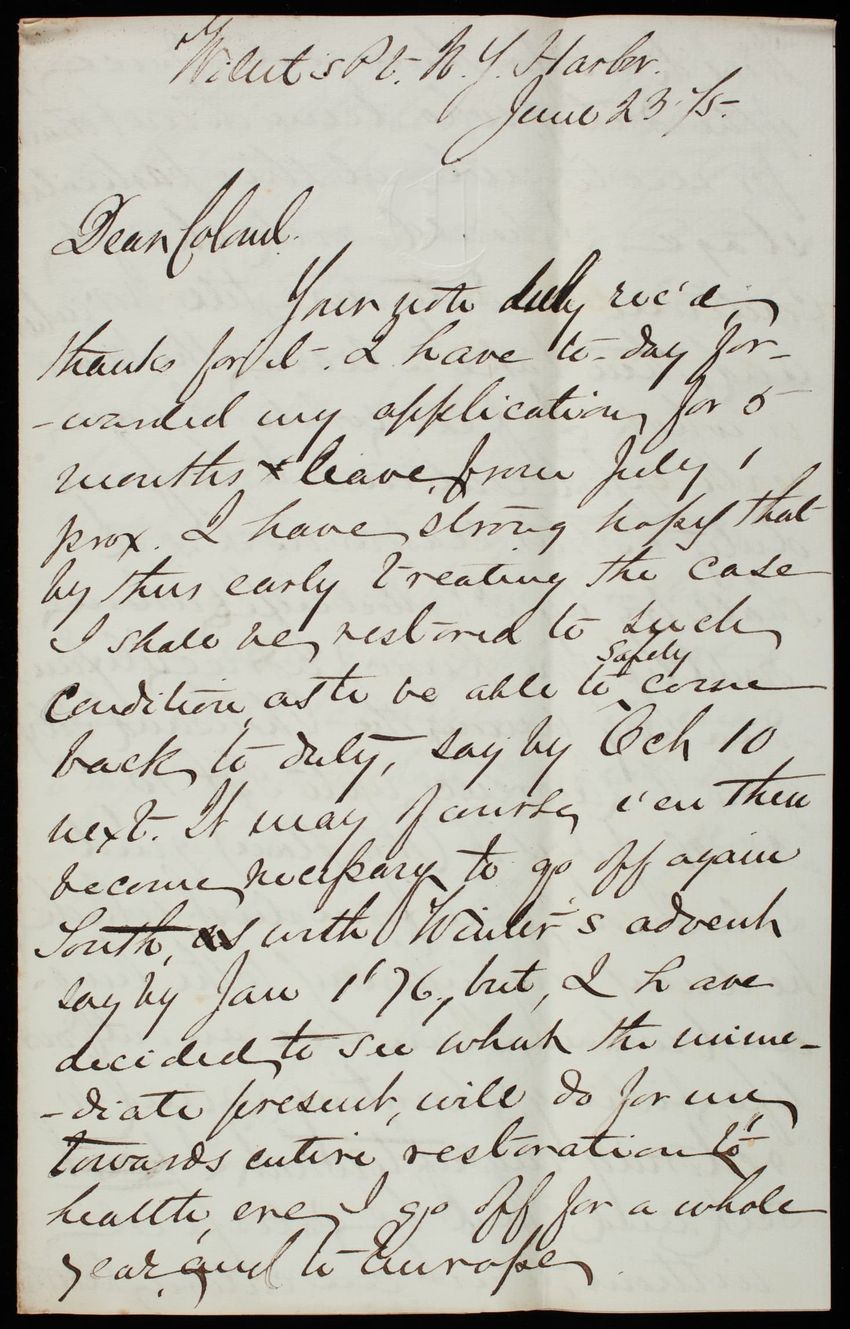 Willet's Pt. N. Y. Harbr.
June 23 /75-
Dear Colonel.
Your note duly rec'd,
thanks for it. I have to-day for-
-warded my application for 5
months leave from July 1
prox. I have strong hopes that
by thus early treating the case
I shall be restored to such
condition as to be able to safely come
back to duty, say by Oct 10
next. It may of course, e'en then
become necessary to go off again
South, as with Winter's advent
say by Jan 1 '76, but, I have
decided to see what the imme-
-diate present, will do for me
towards entire restoration to
health, ere I go off for a whole
year, and to Europe